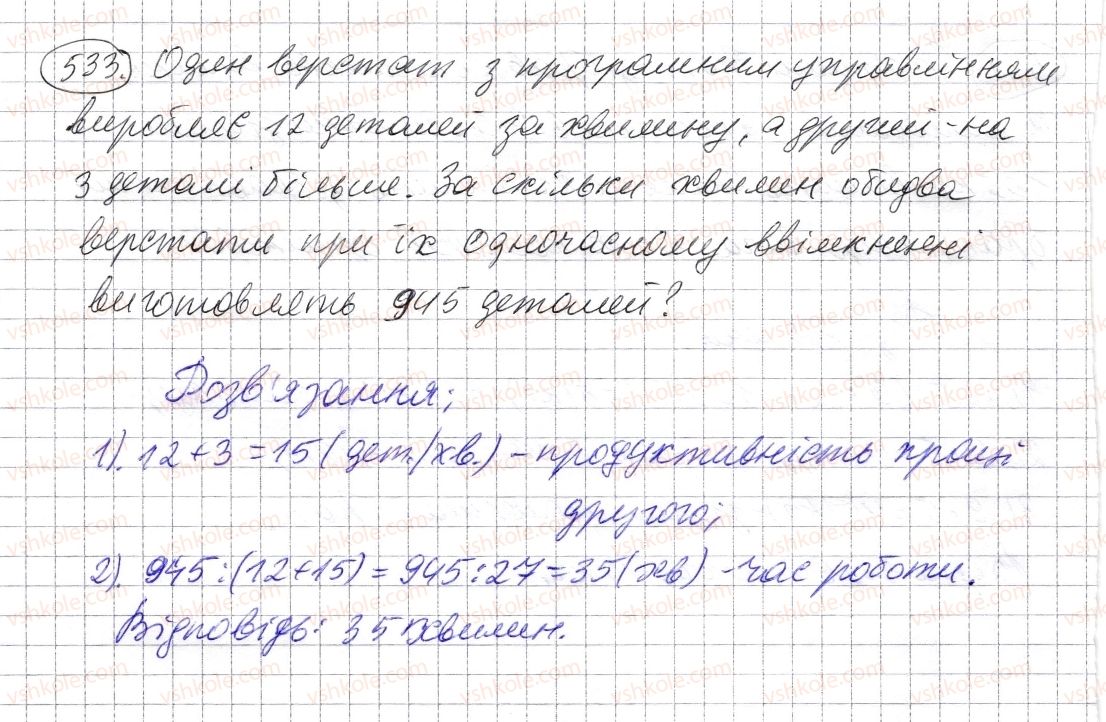 533. Один верстат з програмним управлінням
виробляє 12 деталей за хвилину, а другий - на
3 деталі більше. За скільки хвилин обидва
верстати при їх одночасному ввімкненні
виготовлять 945 деталей?
Розв'язання;
1). 12 + 3 = 15 (дет./хв.) - продуктивність праці
другого;
2). 945 : (12 + 15) = 945 : 27 = 35 (хв) - час роботи.
Відповідь: 35 хвилин.